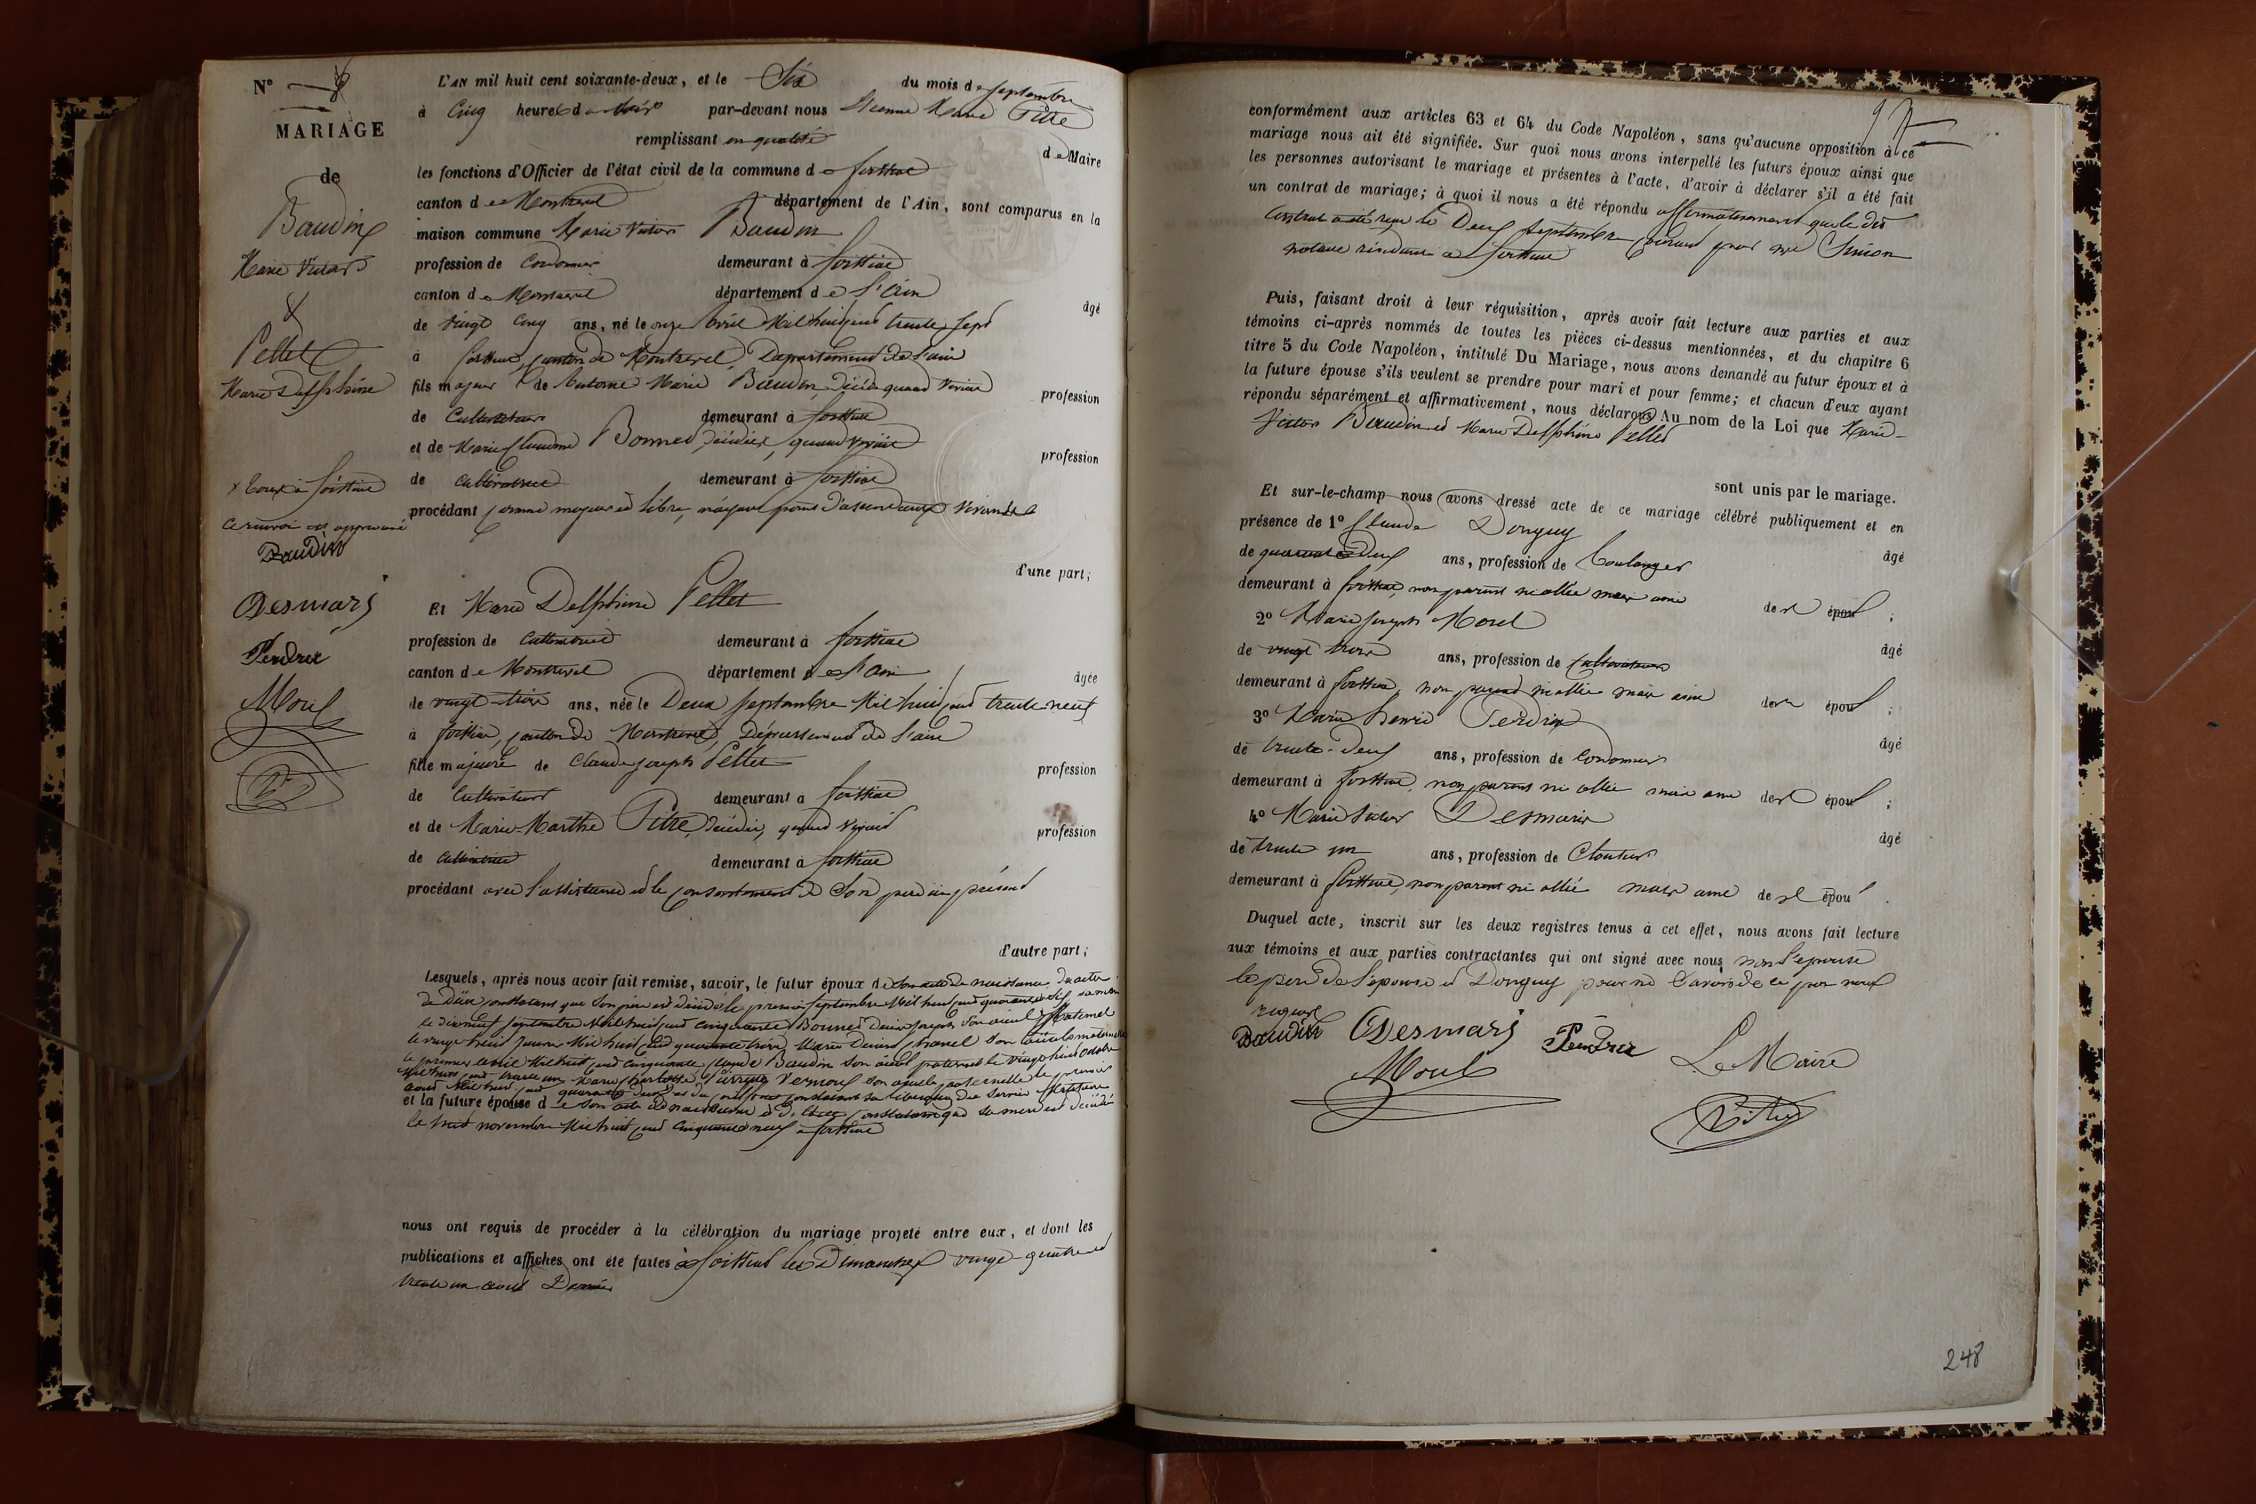 N° 8
MARIAGE
de
Baudin
Marie Victor
&
Pellet
Marie Delphine
x tous à foissiat
ce renvoi est approuvé
Baudin
Desmaris
Perdrix
Morel
L'AN mil huit cent soixante-deux, et le Six du mois de septembre
à Cinq heures du soir par-devant nous Etienne Marie Pitre
remplissant en qualité de Maire
les fonctions d'Officier de l'état civil de la commune de foissiat
canton de Montrevel département de l'Ain, sont comparus en la
maison commune Marie Victor Baudin
profession de Cordonnier demeurant à foissiat
canton de Montrevel département de l'Ain âgé
de vingt Cinq ans, né le onze avril Mil huit cent trente sept
à foissiat, canton de Montrevel, Département de l'ain
fils majeur de Antoine Marie Baudin, Décédé quand vivait profession
de Cultivateur demeurant à foissiat
et de Marie Claudine Bonnet, décédée, quand vivait profession
de Cultivatrice demeurant à foissiat
procédant comme majeur et libre, n'ayant point d'ascendants vivants
d'une part;
Et Marie Delphine Pellet
profession de Cultivatrice demeurant à foissiat
canton de Montrevel département de l'ain âgée
de vingt-trois ans, née le Deux septembre Mil huit cent trente-neuf
à foissiat, canton de Montrevel, Département de l'ain
fille majeure de Claude Joseph Pellet profession
de Cultivateur demeurant à foissiat
et de Marie-Marthe Pitre, décédée, quand vivait profession
de Cultivatrice demeurant à foissiat
procédant avec l'assistance et le consentement de Son père ici présent
d'autre part;
Lesquels, après nous avoir fait remise, savoir, le futur époux de Son acte de naissance, Des actes
de Décès constatant que Son père est décédé le premier septembre Mil huit cent quarante sa mère
le dix neuf septembre Mil huit cent cinquante Bonnet Denis Joseph Son aïeul Maternel
le vingt huit Janvier Mil huit cent quarante trois, Marie Son aïeule maternelle
le premier Mil huit cent cinquante, Claude Baudin Son aïeul paternel le vingt huit octobre
Mil huit cent trente un Marie Vernoux Son aïeule paternelle le premier
août Mil huit cent quarante Deux
et la future épouse de Son acte de naissance et De Décès constatant que sa mère est Décédée
le huit novembre Mil huit cent Cinquante neuf à foissiat
nous ont requis de procéder à la célébration du mariage projeté entre eux, et dont les
publications et affiches ont été faites à foissiat les Dimanches vingt-quatre et
trente un août Dernier
conformément aux articles 63 et 64 du Code Napoléon, sans qu'aucune opposition à ce
mariage nous ait été signifiée. Sur quoi nous avons interpellé les futurs époux ainsi que
les personnes autorisant le mariage et présentes à l'acte, d'avoir à déclarer s'il a été fait
un contrat de mariage; à quoi il nous a été répondu affirmativement que le dit
Contrat a été reçu le Deux septembre Courant par me Simon
notaire résidant à foissiat
Puis, faisant droit à leur réquisition, après avoir fait lecture aux parties et aux
témoins ci-après nommés de toutes les pièces ci-dessus mentionnées, et du chapitre 6
titre 5 du Code Napoléon, intitulé Du Mariage, nous avons demandé au futur époux et à
la future épouse s'ils veulent se prendre pour mari et pour femme; et chacun d'eux ayant
répondu séparément et affirmativement, nous déclarons Au nom de la Loi que Marie-
Victor Baudin et Marie Delphine Pellet
sont unis par le mariage.
Et sur-le-champ nous avons dressé acte de ce mariage célébré publiquement et en
présence de 1° Claude Donguy âgé
de quarante Deux ans, profession de Boulanger
demeurant à foissiat, non parent ni allié mais ami des époux;
2° Marie Joseph Morel âgé
de vingt trois ans, profession de Cultivateur
demeurant à foissiat, non parent ni allié mais ami des époux;
3° Marie Henri Perdrix âgé
de trente-deux ans, profession de Cordonnier
demeurant à foissiat, non parent ni allié mais ami des époux;
4° Marie Victor Desmaris âgé
de trente un ans, profession de Cloutier
demeurant à foissiat, non parent ni allié mais ami des époux.
Duquel acte, inscrit sur les deux registres tenus à cet effet, nous avons fait lecture
aux témoins et aux parties contractantes qui ont signé avec nous non l'épouse
le père de l'épouse et Donguy pour ne Savoir de ce par nous
requis
Baudin Desmaris Perdrix Le Maire
Morel
Pitre
248